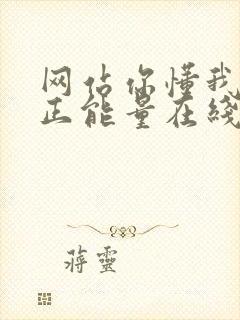 网站你懂我
正能量在线
蒋灵